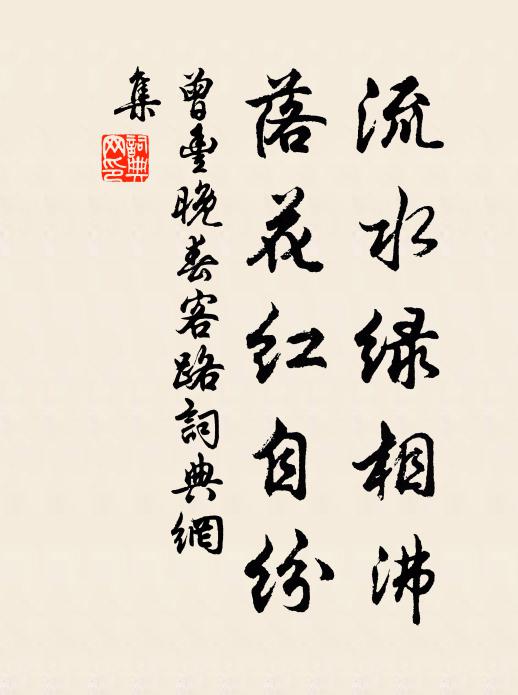 流水绿相沸
落花红自纷
曾豐晚春客路詞典網
集
詞典網印